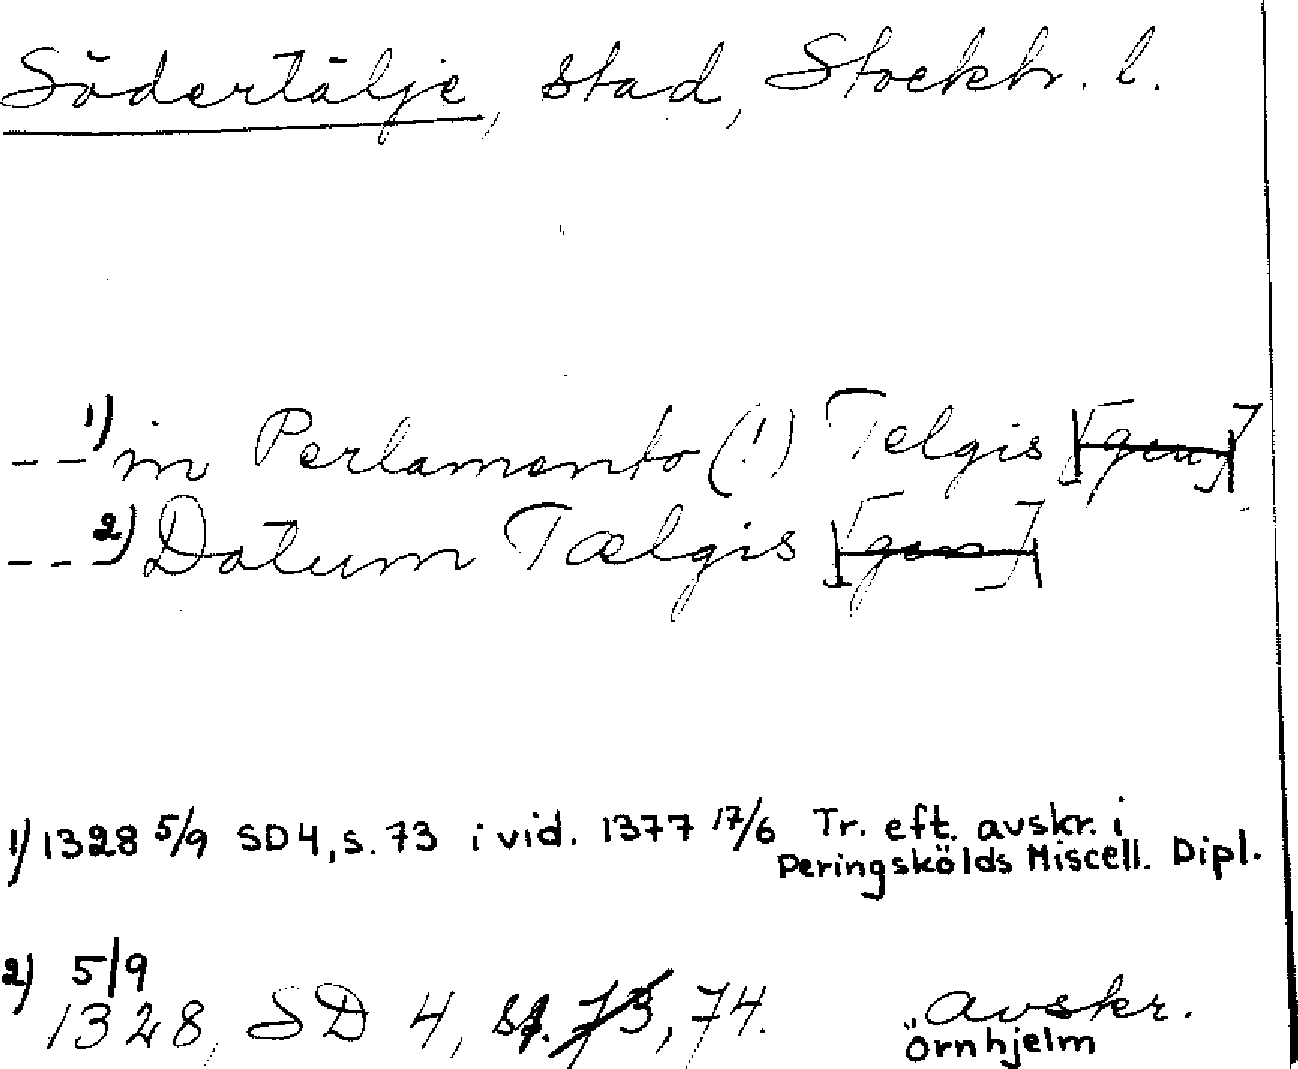 Södertälje, stad, Stockh. l.
--1) in Perlamento (!) Telgis [gen]
--2) Datum Tælgis [gen]
1) 1328 5/9 SD 4, s. 73 i vid. 1377 17/6 Tr. eft. avskr. i
Peringskölds Miscell. Dipl.
2) 5/9
1328, SD 4, s. 73, 74. avskr.
Örnhjelm